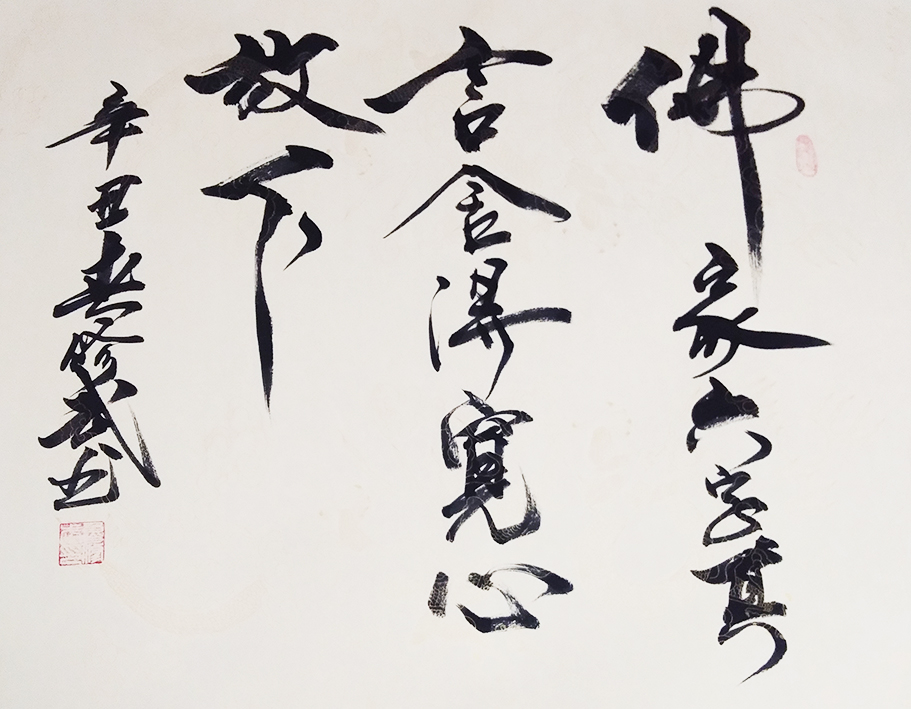 佛家六字真
言舍得寬心
放下
辛丑春修武书